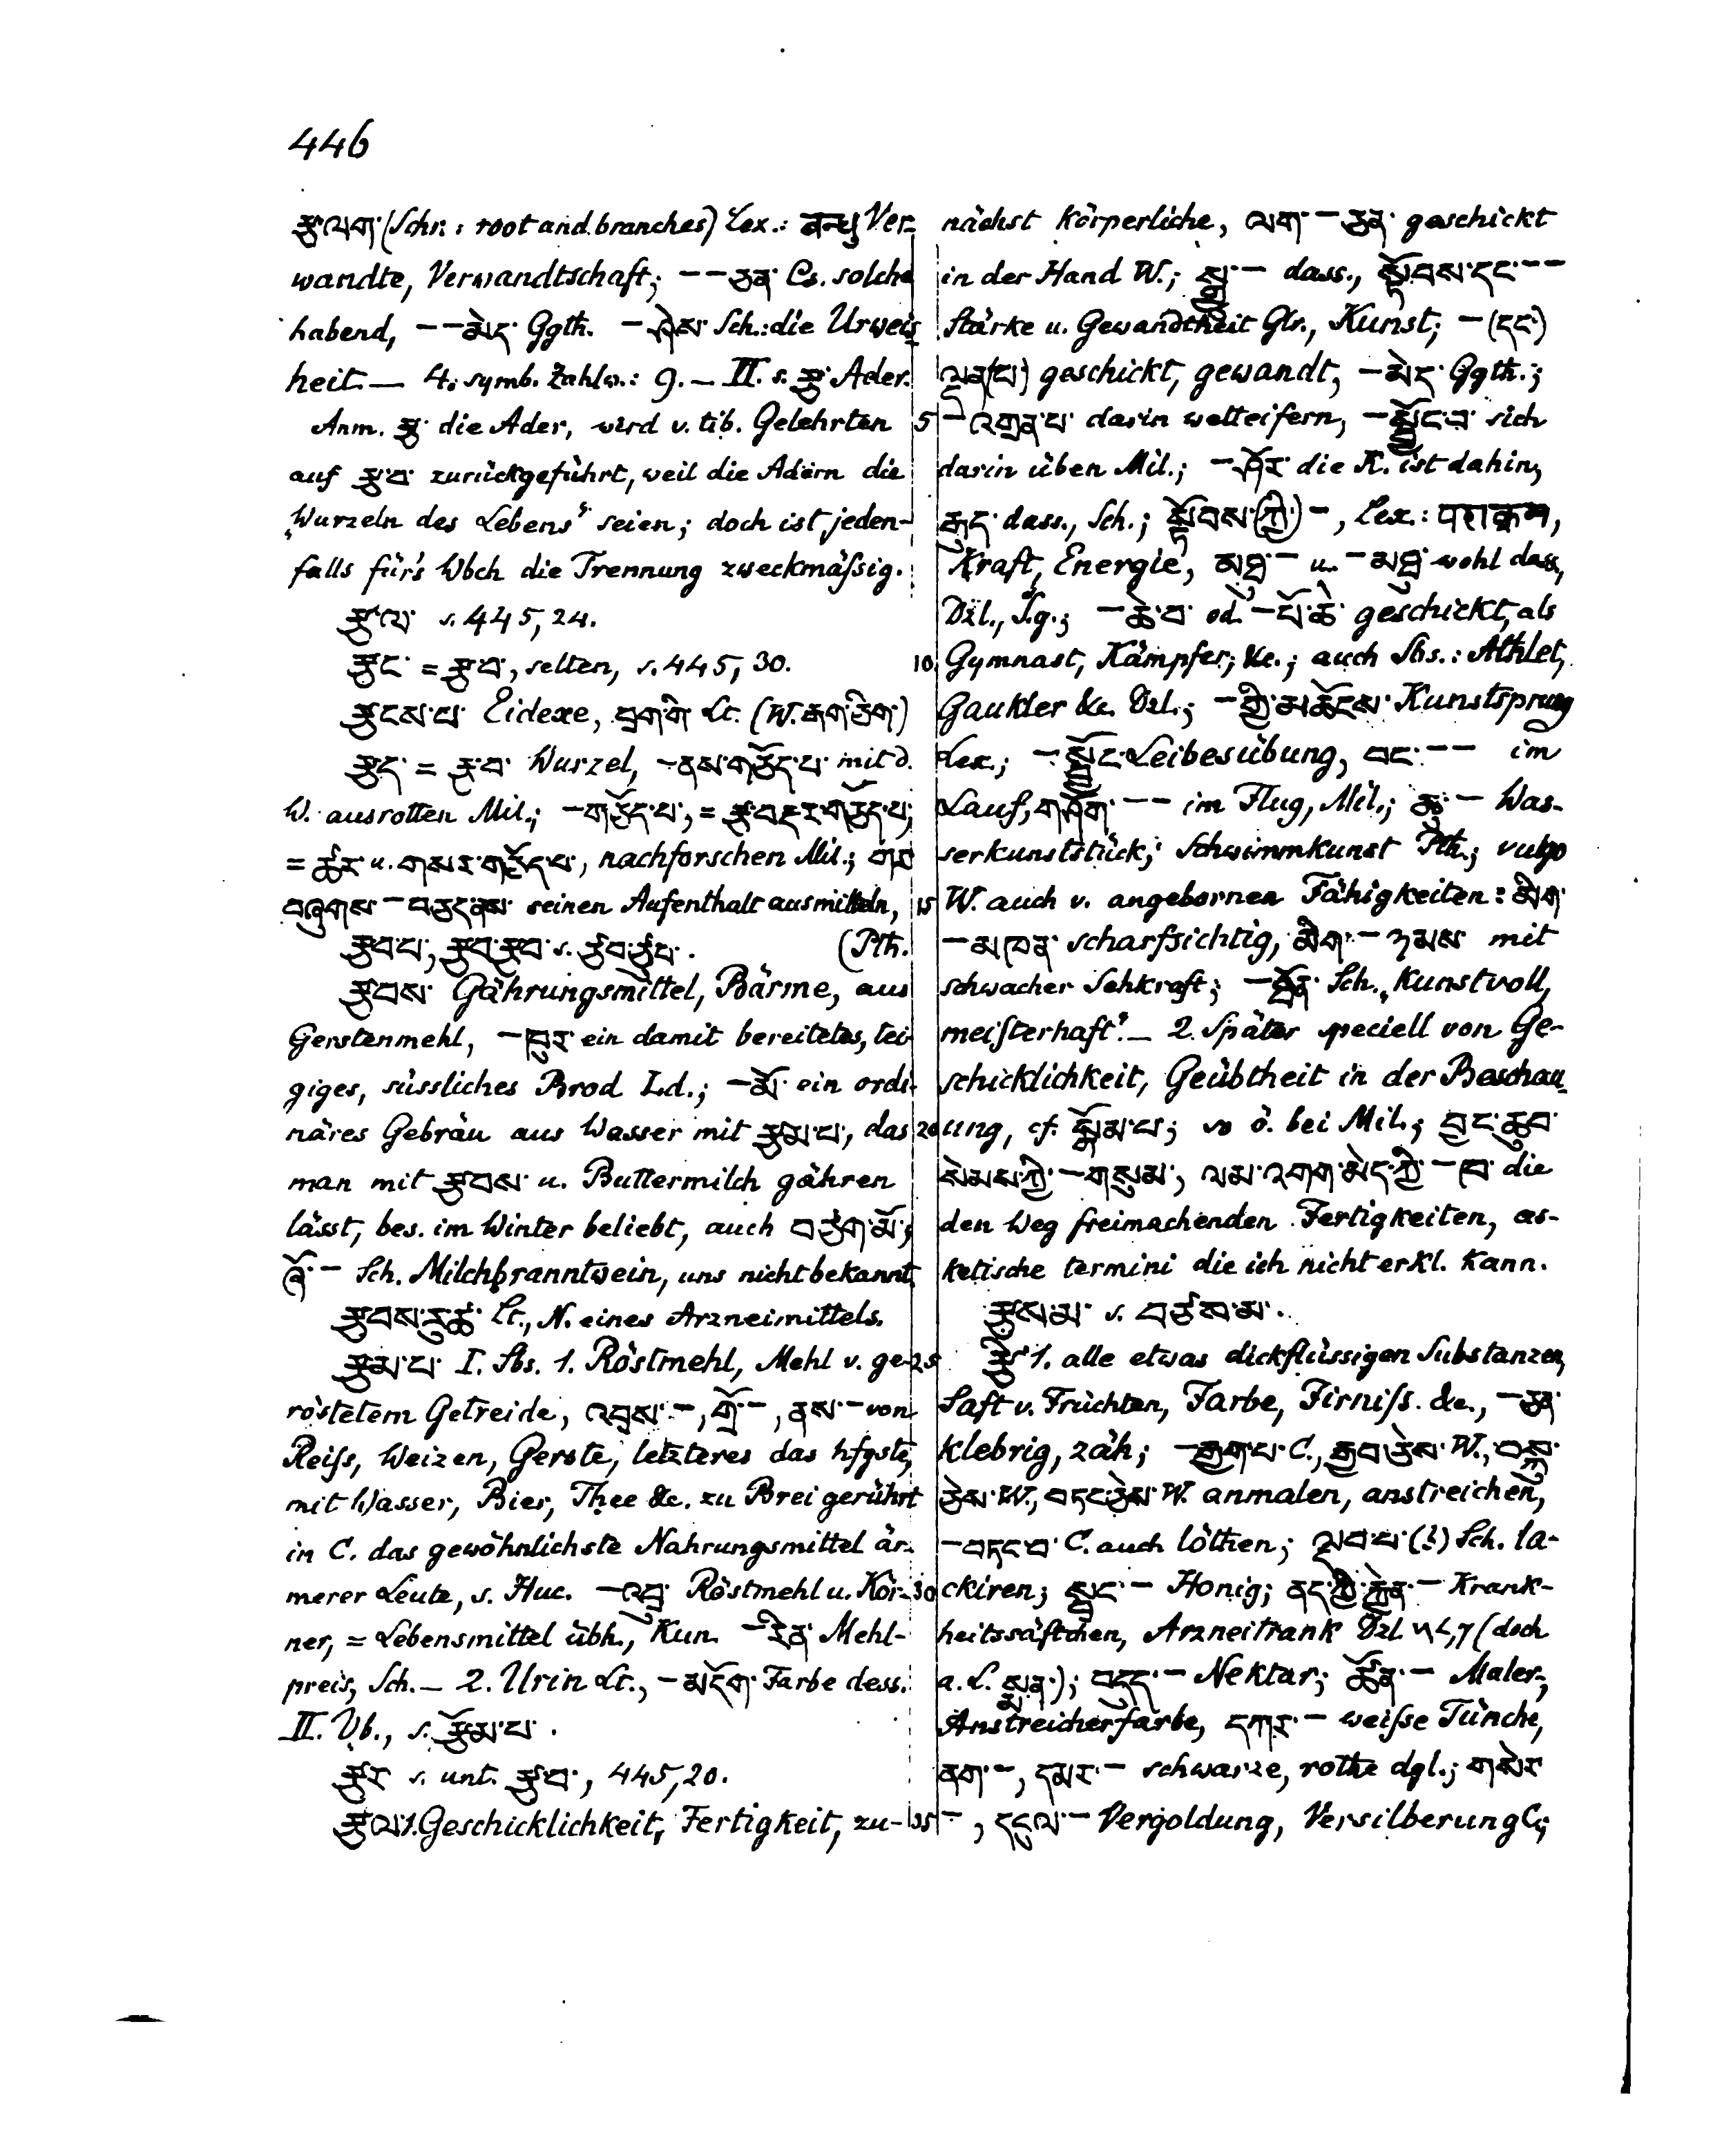 446
རྩ་ལག་ (Schr.: root and branches) Lex.: बन्धु Ver-
wandte, Verwandtschaft; – – ཅན་ Cs. solche
habend, – – མེད་ Ggth. – ཤེས་ Sch.: die Urweis
heit. – 4. symb. Zahlw.: 9. – II. s. རྩ་ Ader.
Anm. རྩ་ die Ader, wird v. tib. Gelehrten
auf རྩ་བ་ zurückgeführt, weil die Adern die
„Wurzeln des Lebens“ seien; doch ist jeden-
falls für's Wbch die Trennung zweckmäßig.
རྩ་ལ་ s. 445, 24.
རྩང་ = རྩ་བ་, selten, s. 445, 30.
རྩངས་པ་ Eidexe, Lt. (W.
རྩད་ = རྩ་བ་ Wurzel, – ནས་གཅོད་པ་ mit d.
W. ausrotten Mil.; – གཅོད་པ་, =
= ཚར་ u. གསར་གཅོད་པ་, nachforschen Mil.; གར་
བཞུགས་ – བཅད་ནས་ seinen Aufenthalt ausmitteln,
རྩབ་པ་, རྩབ་རྩབ་ s. (Pth.
རྩབས་ Gährungsmittel, Bärme, aus
Gerstenmehl, – ཁུར་ ein damit bereitetes, tei-
giges, süssliches Brod Ld.; – མོ་ ein ordi-
näres Gebräu aus Wasser mit རྩམ་པ་, das
man mit རྩབས་ u. Buttermilch gähren
lässt, bes. im Winter beliebt, auch
ཞོ་ – Sch. Milchbranntwein, uns nicht bekannt.
རྩབས་རུ་ཚ་ Lt., N. eines Arzneimittels.
རྩམ་པ་ I. Sbs. 1. Röstmehl, Mehl v. ge-
röstetem Getreide, འབྲས་ –, གྲོ་ –, ནས་ – von
Reiß, Weizen, Gerste, letzteres das hfgste,
mit Wasser, Bier, Thee &c. zu Brei gerührt
in C. das gewöhnlichste Nahrungsmittel är-
merer Leute, s. Huc. – འབྲུ་ Röstmehl u. Kör-
ner, = Lebensmittel übh., Kun. – རིན་ Mehl-
preis, Sch. – 2. Urin Lt., – མདོག་ Farbe dess.
II. Vb., s. རྩོམ་པ་.
རྩར་ s. unt. རྩ་བ་, 445, 20.
རྩལ་ 1. Geschicklichkeit, Fertigkeit, zu-
nächst körperliche, ལག་ – ཅན་ geschickt
in der Hand W.; སྒྱུ་ – dass., སྟོབས་དང་ – –
Stärke u. Gewandtheit Glr., Kunst; – (དང་)
ལྡན་(པ་) geschickt, gewandt, – མེད་ Ggth.;
5 – འགྲན་པ་ darin wetteifern, – སྦྱོང་བ་ sich
darin üben Mil.; – ཤོར་ die K. ist dahin,
རྒུད་ dass., Sch.; སྟོབས་(ཀྱི་) –, Lex.: पराक्रम,
Kraft, Energie, མཐུ་ – u. – མཐུ་ wohl dass,
Dzl., S.g.; – ཆེ་བ་ od. – པོ་ཆེ་ geschickt, als
10 Gymnast, Kämpfer, &c.; auch Sbs.: Athlet,
Gaukler &c. Dzl.; – གྱི་མཆོངས་ Kunstsprung
Lex.; – སྦྱོང་ Leibesübung, བང་ – – im
Lauf, གཤོག་ – – im Flug, Mil.; ཆུ་ – Was-
serkunststück, Schwimmkunst Pth.; vulgo
15 W. auch v. angebornen Fähigkeiten: མིག་
– མཁན་ scharfsichtig, མིག་ – ཉམས་ mit
schwacher Sehkraft; – སྤྲོན་ Sch. „kunstvoll,
meisterhaft“. – 2. Später speciell von Ge-
schicklichkeit, Geübtheit in der Beschau-
20 ung, cf. སྒོམ་པ་; so ö. bei Mil.; བྱང་ཆུབ་
སེམས་ཀྱི་ – གསུམ་, ལམ་འགག་མེད་ཀྱི་ – ཁ་ die
den Weg freimachenden Fertigkeiten, as-
ketische termini die ich nicht erkl. kann.
རྩས་མ་ s. བརྩས་མ་.
25 རྩི་ 1. alle etwas dickflüssigen Substanzen,
Saft v. Früchten, Farbe, Firniß &c., – ཅན་
klebrig, zäh; – རྒྱག་པ་ C., རྒྱབ་ཅེས་ W.,
ཅེས་ W., བཏང་ཅེས་ W. anmalen, anstreichen,
– བཏང་བ་ C. auch löthen; ལྡབ་པ་ (?) Sch. la-
30 ckiren; སྦྲང་ – Honig; ནད་ཀྱི་རྐྱེན་ – Krank-
heitssäftchen, Arzneitrank Dzl. (doch
a. L. སྨན་); བདུད་ – Nektar; ཚོན་ – Maler-,
Anstreicherfarbe, དཀར་ – weiße Tünche,
ནག་ –, དམར་ – schwarze, rothe dgl.; གསེར་
35 –, དངུལ་ – Vergoldung, Versilberung C.;